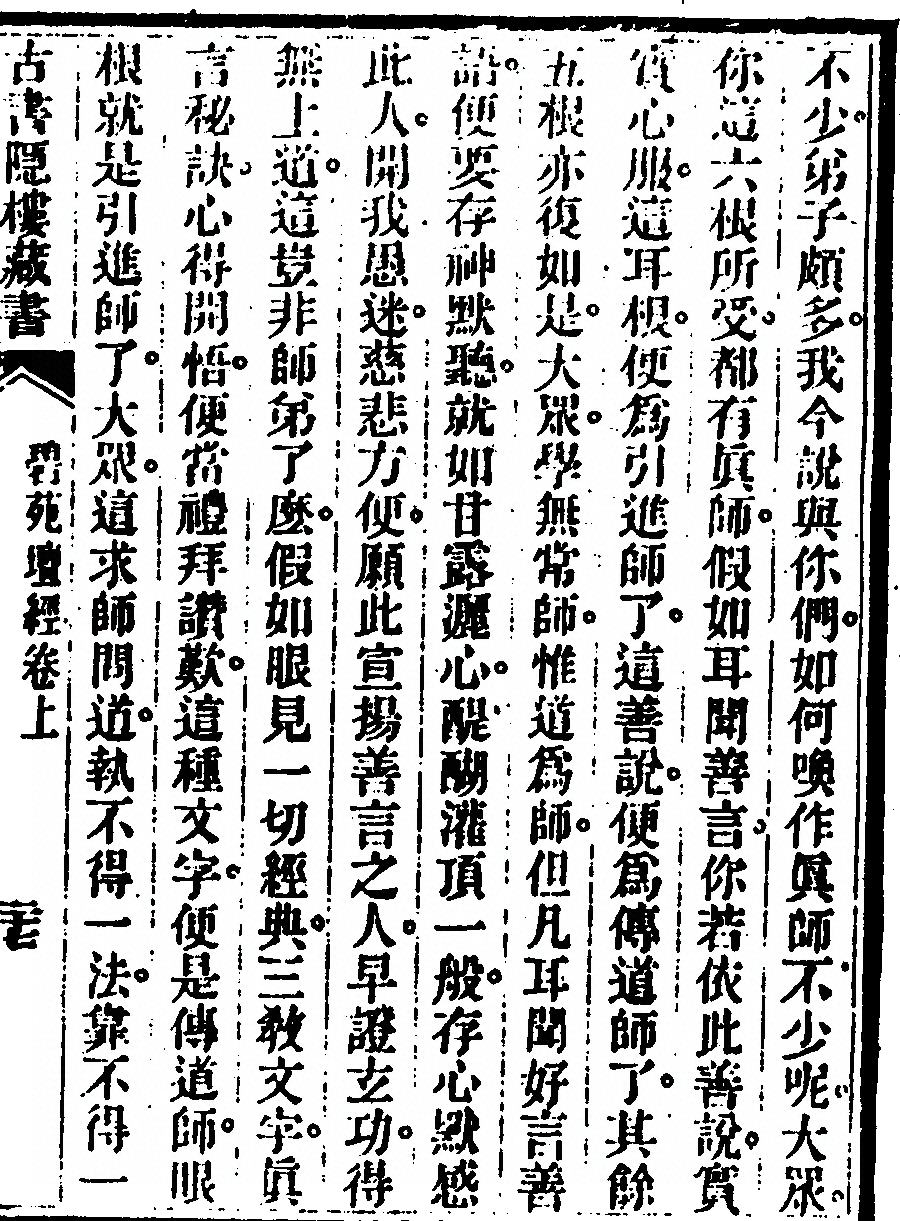 不少。弟子頗多。我今說與你們。如何喚作眞師不少呢。大眾。
你這六根所受。都有眞師。假如耳聞善言。你若依此善說。實
實心服。這耳根。便爲引進師了。這善說。便爲傳道師了。其餘
五根亦復如是。大眾。學無常師。惟道爲師。但凡耳聞好言善
語。便要存神默聽。就如甘露灑心。醍醐灌頂一般。存心默感
此人。開我愚迷。慈悲方便。願此宣揚善言之人。早證玄功。得
無上道。這豈非師弟了麼。假如眼見一切經典。三教文字。眞
言秘訣。心得開悟。便當禮拜讚歎。這種文字。便是傳道師。眼
根就是引進師了。大眾。這求師問道。執不得一法。靠不得一
古書隱樓藏書
碧苑壇經卷上